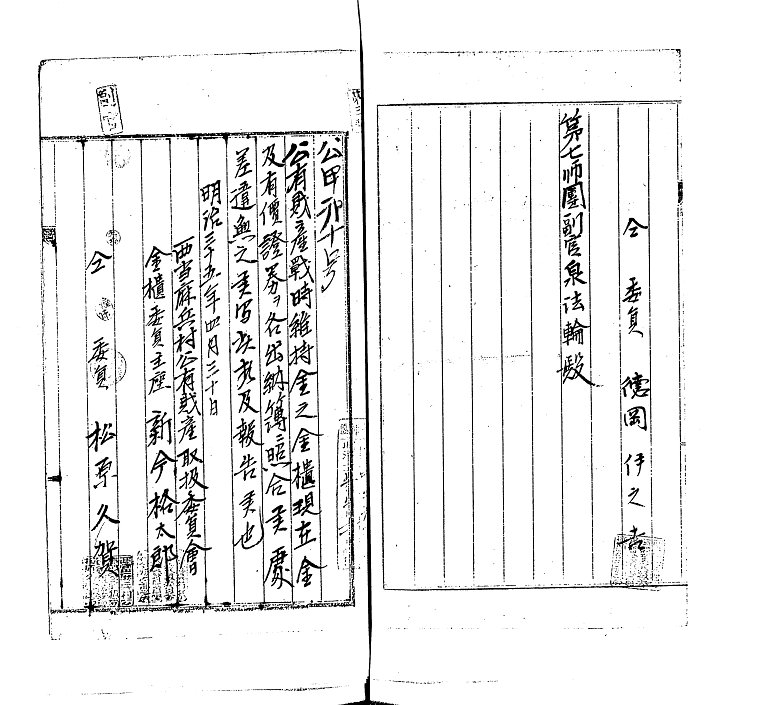 仝 委員 徳岡伊之吉
第七師團副官泉法輪殿
副官
公甲第十号
公有財產戰時維持金之金櫃現在金
及有價證券ヲ各出納簿ニ照合候處
差違無之候間此段及報告候也
明治三十五年四月三十日
西当麻兵村公有財產取扱委員會
金櫃委員主座 新今格太郎
仝 委員 松原久賀